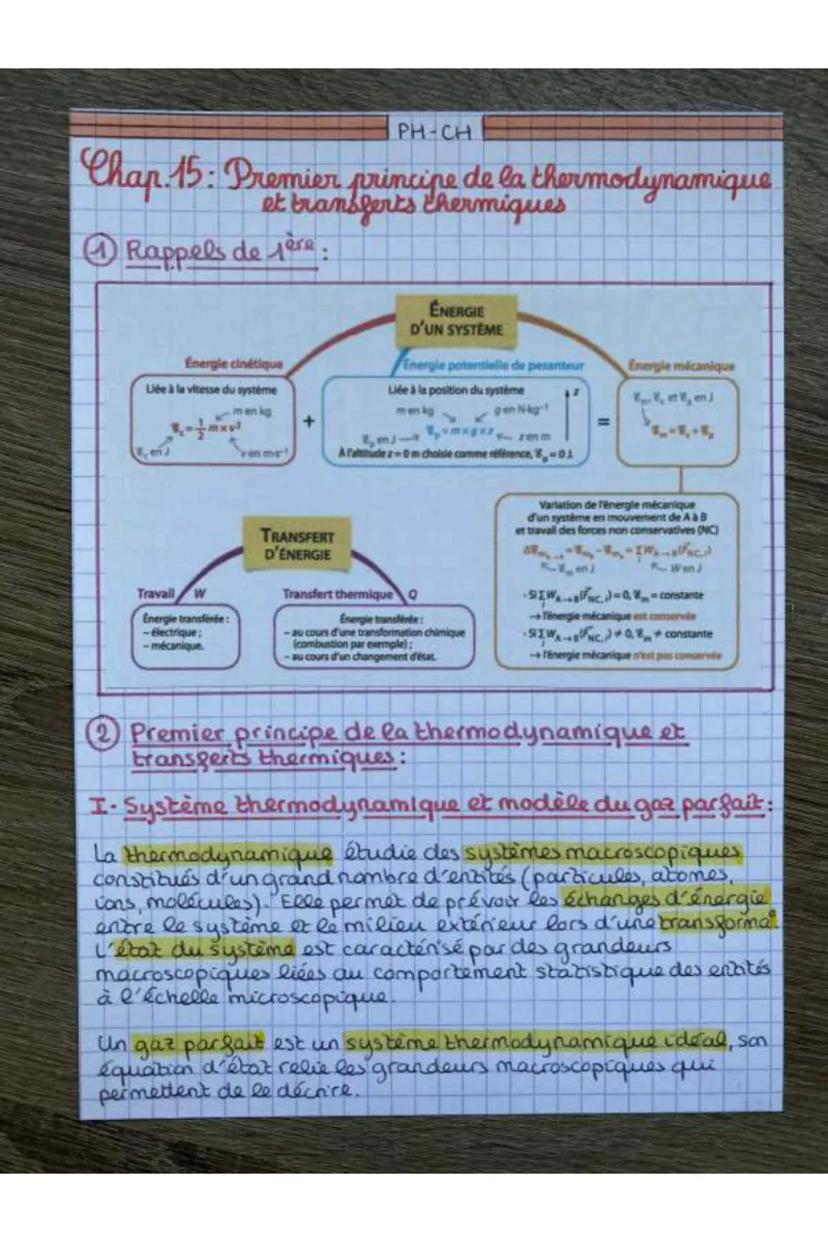 PH-CH
Chap.15: Premier principe de la thermodynamique
et transferts thermiques
① Rappels de 1ère :
ÉNERGIE
D'UN SYSTÈME
Énergie cinétique
Liée à la vitesse du système
m en kg
ℰc = 1/2 m × v²
ℰc en J
v en m·s⁻¹
+
Énergie potentielle de pesanteur
Liée à la position du système
z
m en kg
g en N·kg⁻¹
ℰp en J
ℰp = m × g × z
z en m
À l'altitude z = 0 m choisie comme référence, ℰp = 0 J.
=
Énergie mécanique
ℰm, ℰc et ℰp en J
ℰm = ℰc + ℰp
Variation de l'énergie mécanique
d'un système en mouvement de A à B
et travail des forces non conservatives (NC)
Δℰm A→B = ℰmB – ℰmA = Σ WA→B(FNC,i)
ℰm en J
W en J
· Si Σ WA→B(FNC,i) = 0, ℰm = constante
→ l'énergie mécanique est conservée
· Si Σ WA→B(FNC,i) ≠ 0, ℰm ≠ constante
→ l'énergie mécanique n'est pas conservée
TRANSFERT
D'ÉNERGIE
Travail W
Énergie transférée :
– électrique ;
– mécanique.
Transfert thermique Q
Énergie transférée :
– au cours d'une transformation chimique
(combustion par exemple) ;
– au cours d'un changement d'état.
② Premier principe de la thermodynamique et
transferts thermiques :
I- Système thermodynamique et modèle du gaz parfait :
La thermodynamique étudie des systèmes macroscopiques
constitués d'un grand nombre d'entités (particules, atomes,
ions, molécules). Elle permet de prévoir les échanges d'énergie
entre le système et le milieu extérieur lors d'une transformaº
L'état du système est caractérisé par des grandeurs
macroscopiques liées au comportement statistique des entités
à l'échelle microscopique.
Un gaz parfait est un système thermodynamique idéal, son
équation d'état relie les grandeurs macroscopiques qui
permettent de le décrire.